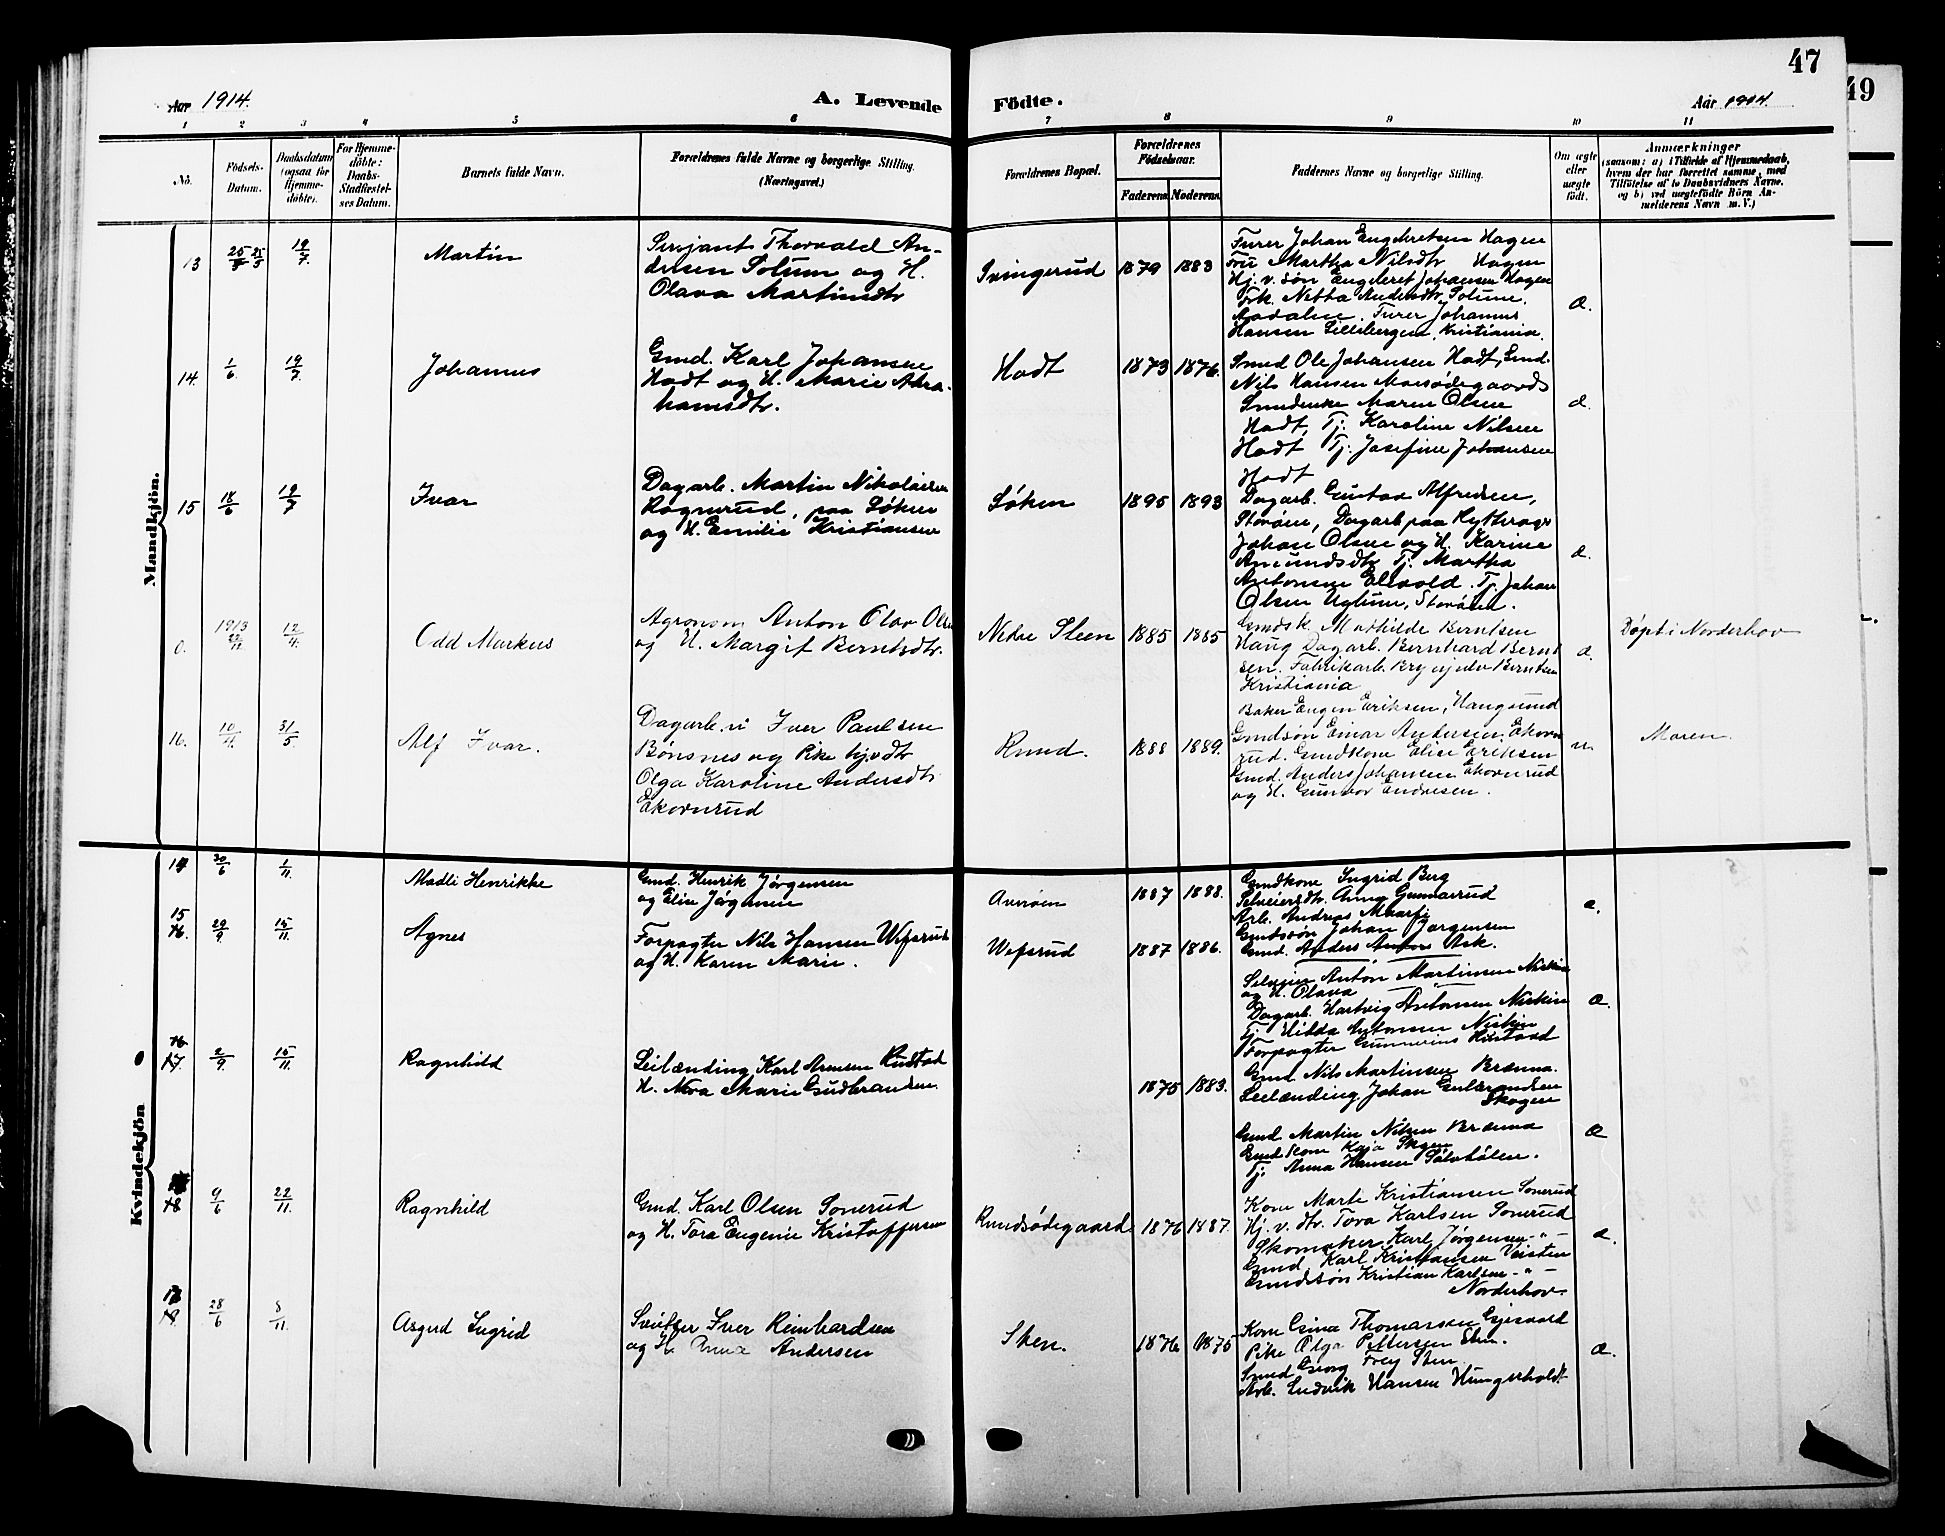 47
49
Aar 1914.
A. Levende
Födte.
Aar 1914.
1 2 3 4 5 6 7 8 9 10 11
No.
Födsels-
Datum.
Daabsdatum
(ogsaa for
Hjemme-
döbte).
For Hjemme-
döbte:
Daabs-
Stadfæstel-
ses Datum.
Barnets fulde Navn.
Forældrenes fulde Navne og borgerlige Stilling.
(Næringsvei.)
Forældrenes Bopæl.
Forældrenes
Födselsaar.
Faderens. Moderens.
Faddernes Navne og borgerlige Stilling.
Om ægte
eller
uægte
født.
Anmærkninger
(saasom: a) i Tilfælde af Hjemmedaab,
hvem der har forrettet samme, med
Tilföielse af to Daabsvidners Navne,
og b) ved uægtefödte Börn An-
melderens Navn m. V.)
Mandkjön.
13 25/5 19/7 Martin
Sersjant Thorvald An-
dersen Solum og H.
Olava Martinsdtr
Svingerud 1879 1883
Furer Johan Engebretsen Hagen
Fru Martha Nilsdtr Hagen
Hj. v. søn Engebret Johansen Hagen
Frk. Netta Andersdtr. Solum,
Aadalen. Furer Johannes
Hansen Lillebergen, Kristiania.
Æ.
14. 1/6 19/7 Johannes
Gmd. Karl Johansen
Hadt og H. Marie Abra-
hamsdtr.
Hadt 1873 1876.
Smed Ole Johansen Hadt, Gmd.
Nils Hansen Moesødegaards
Smedenke Maren Olsen
Hadt, Tj. Karoline Nilsen
Hadt Tj. Josefine Johansen
Hadt
Æ.
15 18/6 19/7 Ivar
Dagarb. Martin Nikolaisen
Rognerud, paa Søhen
og H. Emilie Kristiansen
Søhen 1895 1893
Dagarb. Gustav Alfredsen,
Storøen, Dagarb paa
Johan Olsen og H. Karine
Amundsdtr Tj. Martha
Antonsen Elvold. Tj. Johan
Olsen Uglum, Storøen.
Æ.
0. 1913 12/4. Odd Markus
Agronom Anton Olav Olsen
og H. Margit Berntsdtr.
Nedre Steen 1885 1885
Gmdsk. Mathilde Berntsen
Haug Dagarb. Bernhard Bernt
sen. Fabrikarb. Brynjulv Berntsen
Kristiania
Æ.
Døpt i Norderhov
16. 10/4. 31/5. Alf Ivar.
Dagarb. u Iver Paulsen
Bönsnes og Pike
Olga Karoline Andersdtr
Ekornrud
Rund. 1888 1889.
Baker Eugen Eriksen, Haugsund
Gmdsøn Einar Andersen Ekorn
rud. Gmdkone Elise Eriksen
Gmd. Anders Johansen Ekornrud
og H. Gunvor Endresen.
u.
Moren.
Kvindekjön
14 30/6 1/11. Madli Henrikke
Gmd. Henrik Jørgensen
og Elise Jørgensen
1887 1888.
Gmdkone Ingrid Berg
Anna Gunnarud
Arb. Andreas
Gmdssøn Johan Jørgensen
Gmd. Anders Ask.
æ.
15 29/9 15/11. Agnes
Forpagter Nils Hansen Wefsrud
og H. Karen Marie.
Wefsrud 1887 1886.
Anton Martinsen
og H. Olava
Dagarb. Hartvig Antonsen
Tj. Hilda Antonsen
Forpagter Gunnerius Rustad
Æ.
16 2/9 15/11. Ragnhild
Leilænding Karl Arnesen Rustad
H. Nora Marie Gudbrandsen.
1875 1883.
Gmd Nils Martinsen Brænna.
Leilænding Johan Gulbrandsen
Skogen
Gmd Martin Nilsen Brænna
Gmd kone Kaja Skogen
Tj. Anna Hansen Sølvhølen.
Æ
18 9/6 22/11. Ragnhild
Gmd. Karl Olsen Sonerud
og H. Tora Eugenie Kristoffersen
Rundsødegaard 1876 1887.
Kone Marte Kristiansen Sonerud
Hj. v. dtr. Tova Karlsen Sonerud
Skomaker Karl Jørgensen -"-
Gmd. Karl Kristiansen Veisten
Gmdssøn Kristian Karlsen -"-
Norderhov.
æ.
18 28/6 8/11. Asgerd Ingrid
Sveitser Iver Reinhardsen
og H. Anna Andersen
Sten. 1876 1875
Kone Gina Thomassen
Pike Olga Pettersen Sten.
Smed Georg Frey Sten
Arb. Ludvik Hansen Hungerholdt
Æ.